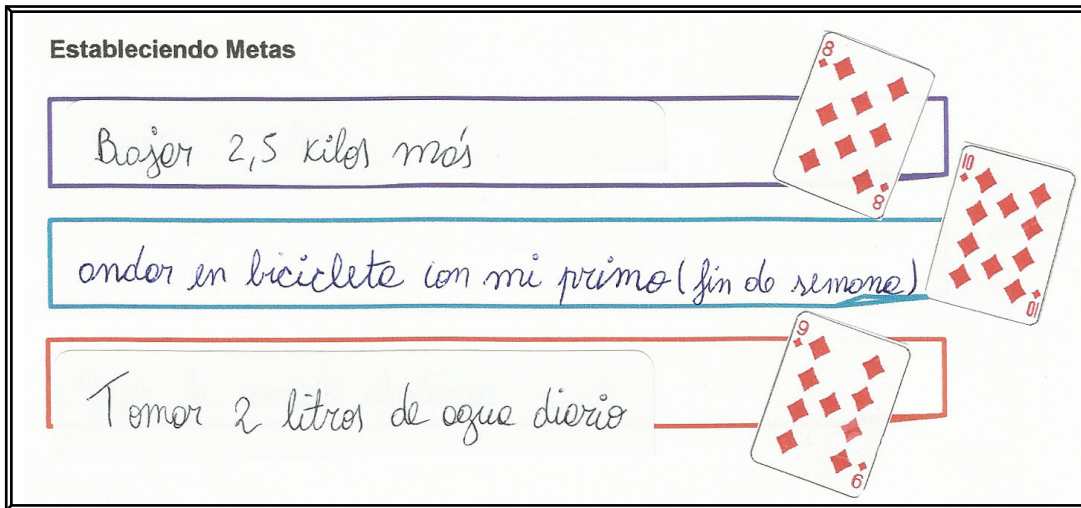 Estableciendo Metas
8
8
Bajar 2,5 kilos más
10
10
andar en bicicleta con mi primo (fin de semana)
9
9
Tomar 2 litros de agua diario